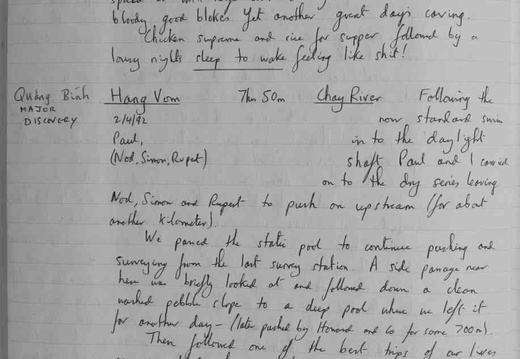 bloody good blokes. Yet another great days caving.
Chicken supreme and rice for supper followed by a
lousy nights sleep to wake feeling like shit!
Quảng Bình Hang Vom 7hr 50m Chay River Following the
MAJOR DISCOVERY 2/4/92 now standard swim
Paul, in to the daylight
(Nod, Simon, Rupert) shaft Paul and I carried
on to the dry series leaving
Nod, Simon and Rupert to push on upstream (for about
another kilometer).
We passed the static pool to continue pushing and
surveying from the last survey station. A side passage near
here was briefly looked at and followed down a clean
washed pebble slope to a deep pool where we left it
for another day - (later pushed by Howard and Co for some 700m).
Then followed one of the best trips of our lives